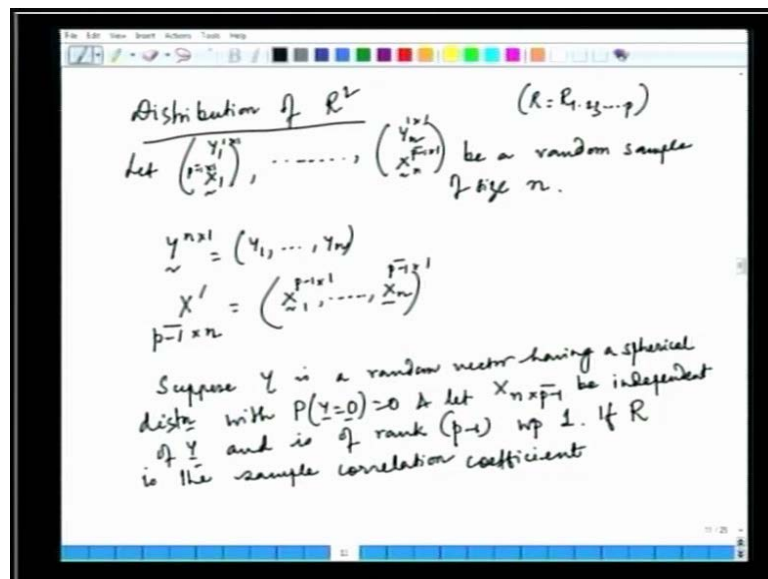 File Edit View Insert Actions Tools Help
Distribution of R² (R = R₁.₂₃...p)
Let (Y₁^{1×1} / X₁^{p-1×1}), ........, (Yₙ^{1×1} / Xₙ^{p-1×1}) be a random sample
of size n.
y^{n×1} = (Y₁, ..., Yₙ)
X' = (X₁^{p-1×1}, ....., Xₙ^{p-1×1})
p-1 × n
Suppose Y is a random vector having a spherical
distn with P(Y=0)=0 & let X n×p-1 be independent
of Y and is of rank (p-1) wp 1. If R
is the sample correlation coefficient
11 / 25